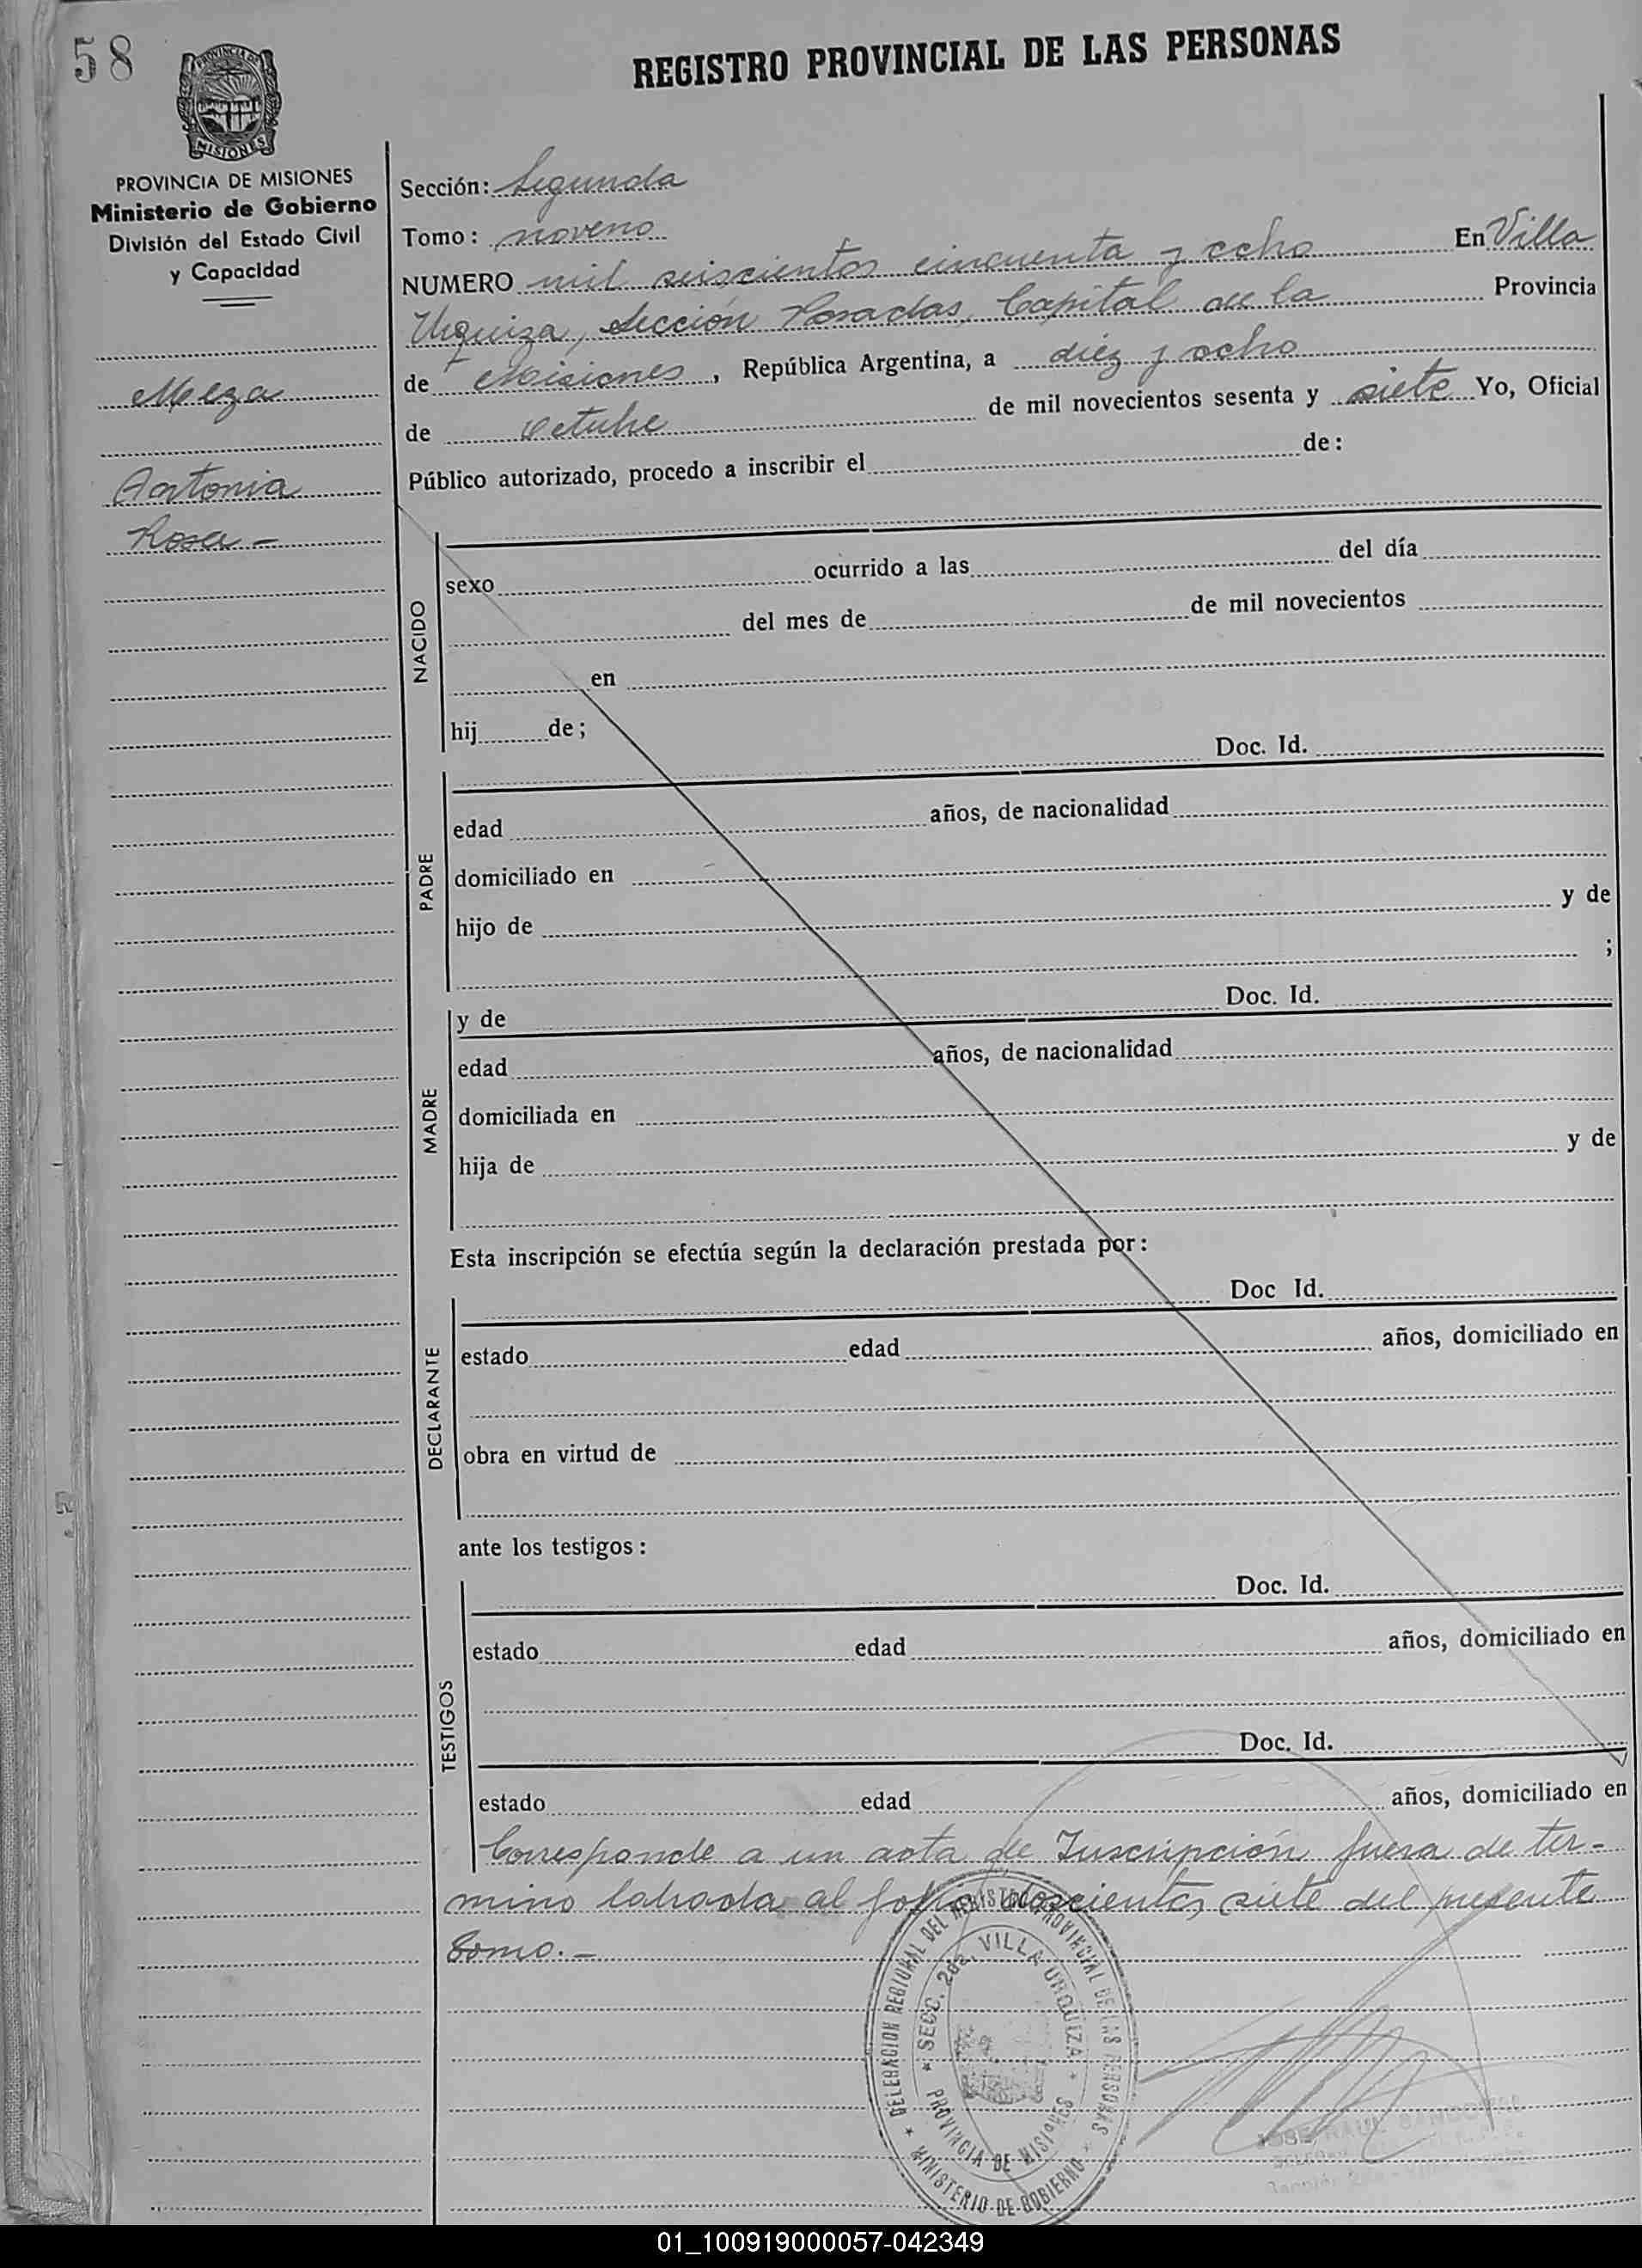 58
REGISTRO PROVINCIAL DE LAS PERSONAS
PROVINCIA DE MISIONES
Ministerio de Gobierno
División del Estado Civil
y Capacidad
Meza
Antonia
Rosa -
Sección: Segunda
Tomo: noveno
NUMERO mil seiscientos cincuenta y ocho En Villa
Urquiza, Sección Posadas, Capital de la Provincia
de Misiones, República Argentina, a diez y ocho
de Octubre de mil novecientos sesenta y siete Yo, Oficial
Público autorizado, procedo a inscribir el de:
NACIDO
sexo ocurrido a las del día
del mes de de mil novecientos
en
hij de;
PADRE
Doc. Id.
edad años, de nacionalidad
domiciliado en
hijo de y de
;
MADRE
y de Doc. Id.
edad años, de nacionalidad
domiciliada en
hija de y de
Esta inscripción se efectúa según la declaración prestada por:
DECLARANTE
Doc Id.
estado edad años, domiciliado en
obra en virtud de
ante los testigos:
TESTIGOS
Doc. Id.
estado edad años, domiciliado en
Doc. Id.
estado edad años, domiciliado en
Corresponde a un acta de Inscripción fuera de ter-
mino labrada al folio doscientos siete del presente
tomo.-
DELEGACION REGIONAL DEL REGISTRO PROVINCIAL DE LAS PERSONAS
SECC. 2da. VILLA URQUIZA
PROVINCIA DE MISIONES
MINISTERIO DE GOBIERNO
JOSE RAUL
01_100919000057-042349